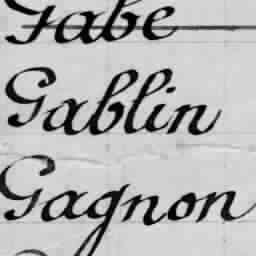 Gabe
Gablin
Gagnon